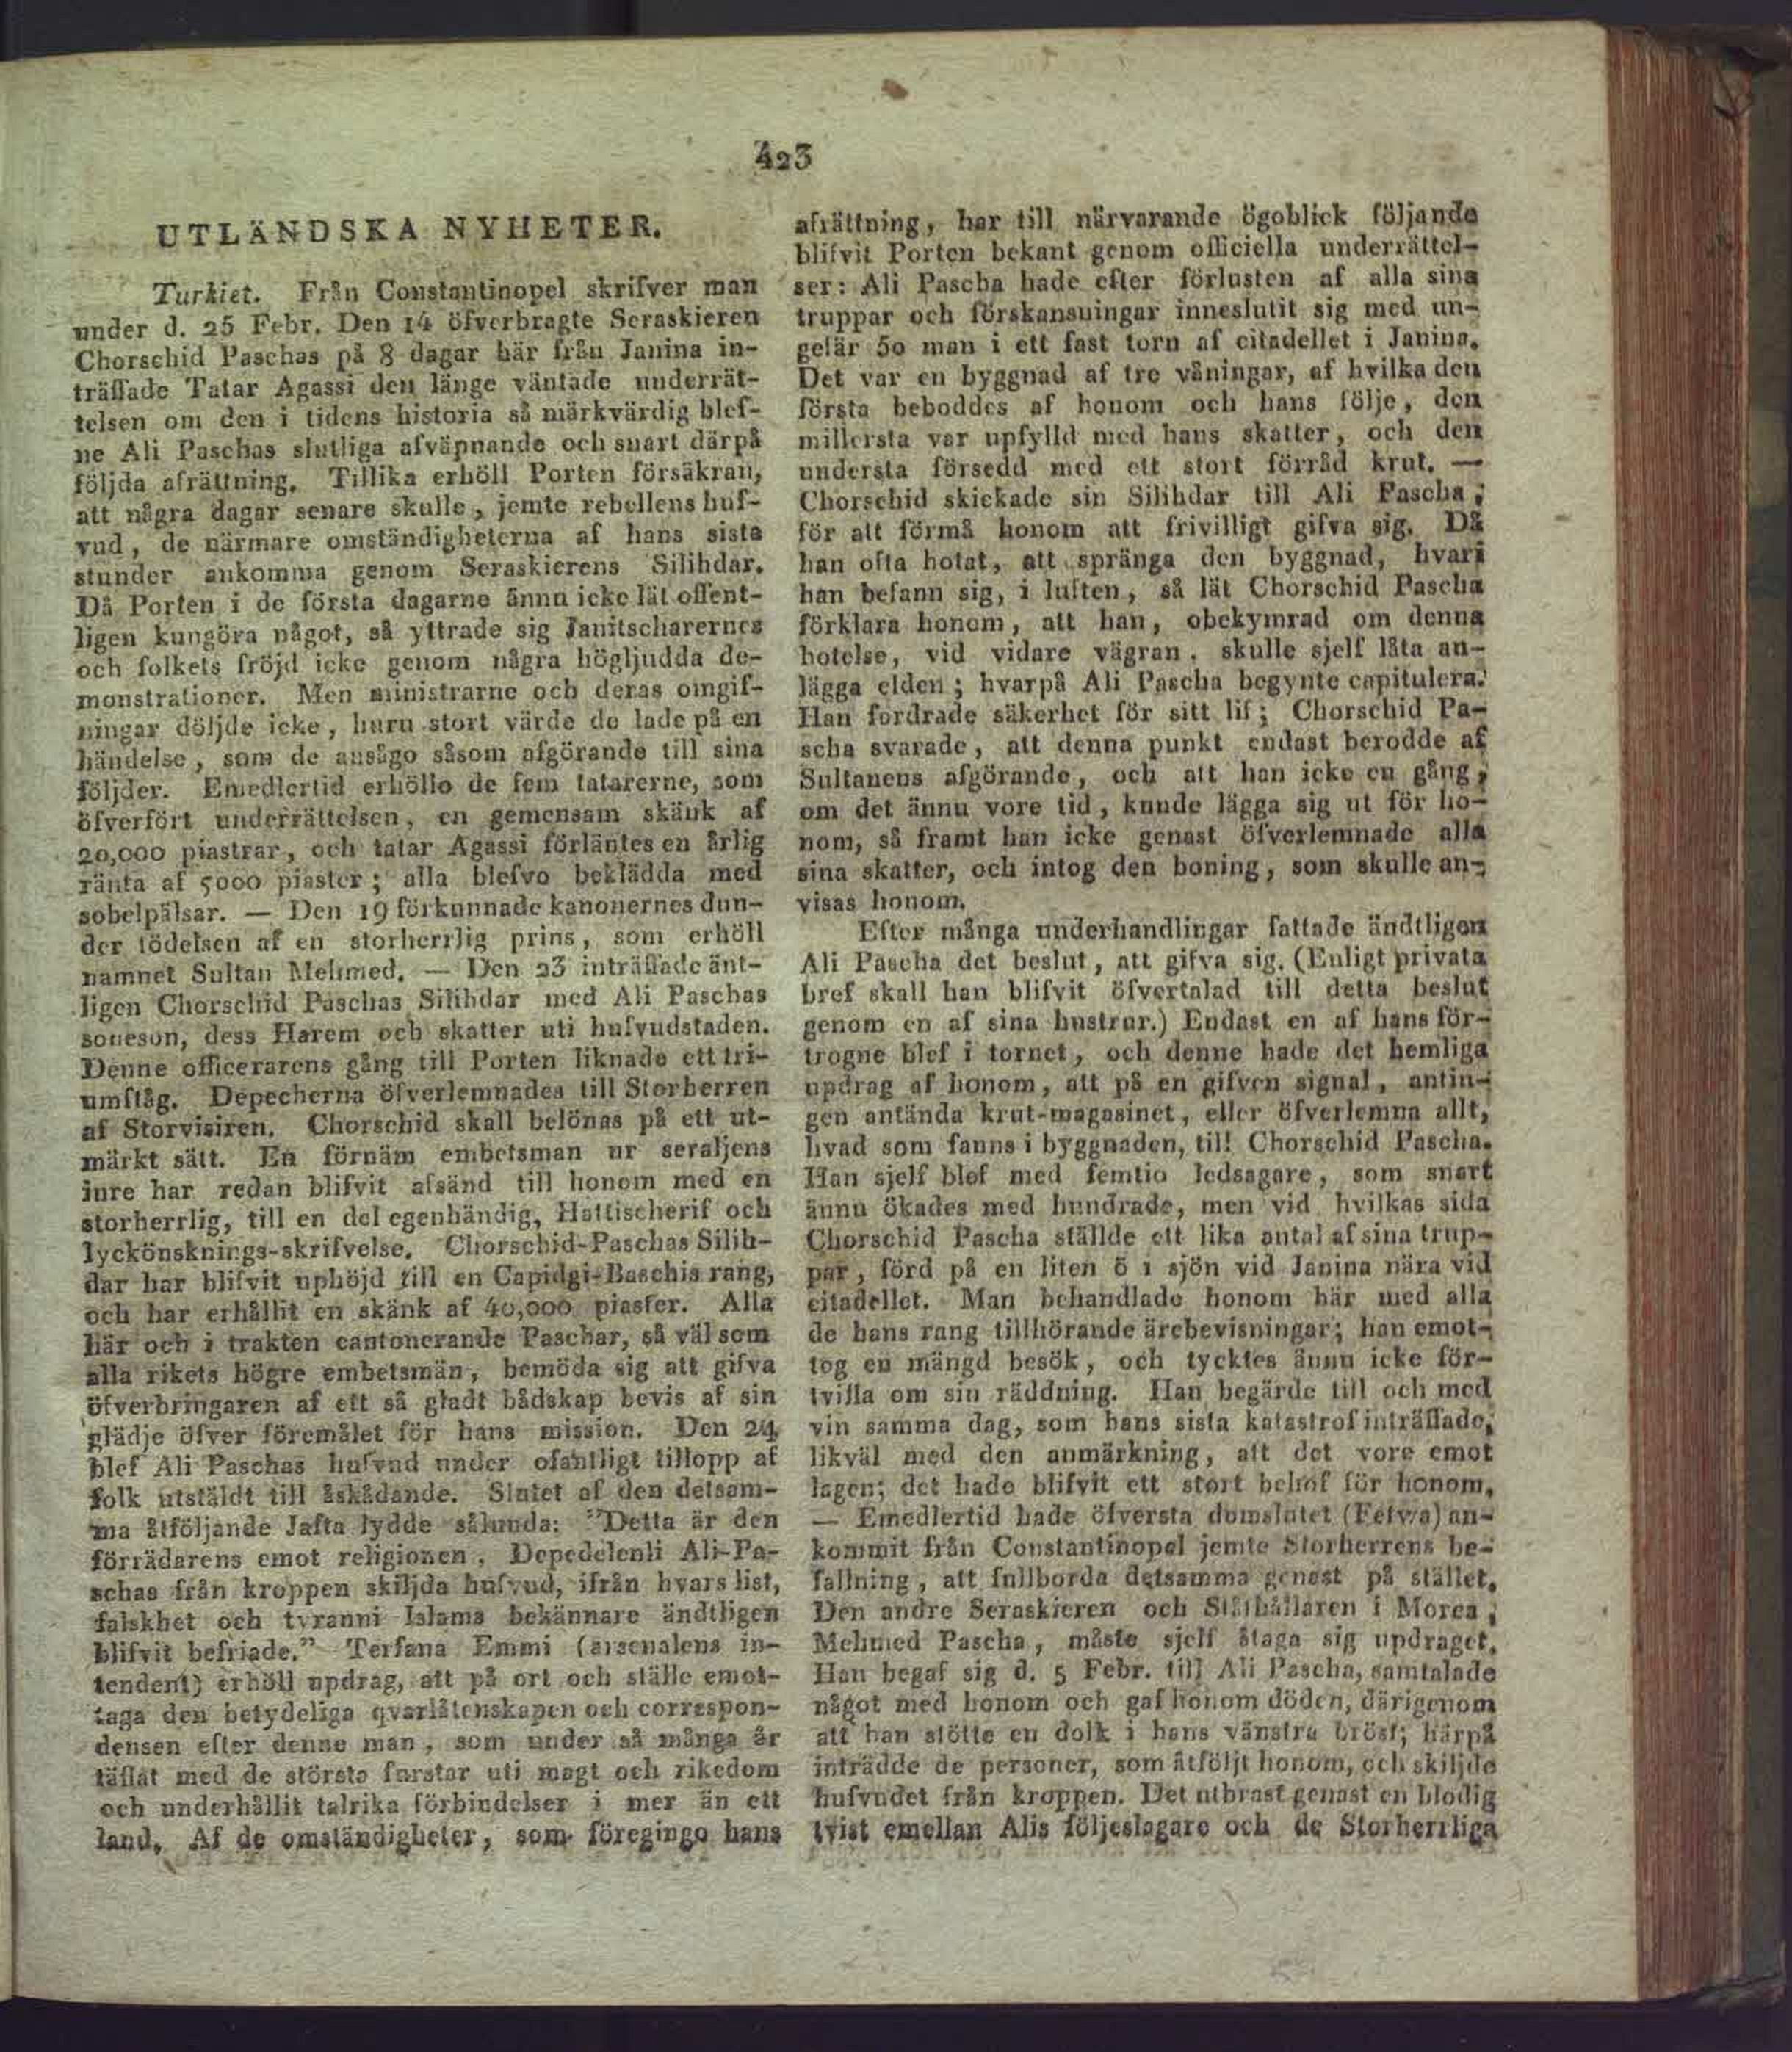 423
UTLÄNDSKA NYHETER.
Turkiet. Från Constantinopel skrifver man
under d. 25 Febr. Den 14 öfverbragte Seraskieren
Chorschid Paschas på 8 dagar här från Janina in-
träffade Tatar Agassi den länge väntade underrät-
telsen om den i tidens historia så märkvärdig blef-
ne Ali Paschas slutliga afväpnande och snart därpå
följda afrättning. Tillika erhöll Porten försäkran,
att några dagar senare skulle, jemte rebellens huf-
vud, de närmare omständigheterna af hans sista
stunder ankomma genom Seraskierens Silihdar.
Då Porten i de första dagarne ännu icke lät offent-
ligen kungöra något, så yttrade sig Janitscharernes
och folkets fröjd icke genom några högljudda de-
monstrationer. Men ministrarne och deras omgif-
ningar döljde icke, huru stort värde de lade på en
händelse, som de ansågo såsom afgörande till sina
följder. Emedlertid erhöllo de fem tatarerne, som
öfverfört underrättelsen, en gemensam skänk af
20,000 piastrar, och tatar Agassi förläntes en årlig
ränta af 5000 piaster; alla blefvo beklädda med
sobelpälsar. — Den 19 förkunnade kanonernes dun-
der födelsen af en storherrlig prins, som erhöll
namnet Sultan Mehmed. — Den 23 inträffade änt-
ligen Chorschid Paschas Silihdar med Ali Paschas
soneson, dess Harem och skatter uti hufvudstaden.
Denne officerarens gång till Porten liknade ett tri-
umftåg. Depecherna öfverlemnades till Storherren
af Storvisiren. Chorschid skall belönas på ett ut-
märkt sätt. En förnäm embetsman ur seraljens
inre har redan blifvit afsänd till honom med en
storherrlig, till en del egenhändig, Hattischerif och
lyckönsknings-skrifvelse. Chorschid-Paschas Silih-
dar har blifvit uphöjd till en Capidgi-Baschis rang,
och har erhållit en skänk af 40,000 piaster. Alla
här och i trakten cantonerande Paschar, så väl som
alla rikets högre embetsmän, bemöda sig att gifva
öfverbringaren af ett så gladt bådskap bevis af sin
glädje öfver föremålet för hans mission. Den 24
blef Ali Paschas hufvud under ofantligt tillopp af
folk utstäldt till åskådande. Slutet af den detsam-
ma åtföljande Jafta lydde sålunda: "Detta är den
förrädarens emot religionen, Depedelenli Ali-Pa-
schas från kroppen skiljda hufvud, ifrån hvars list,
falskhet och tyranni Islams bekännare ändtligen
blifvit befriade." Tersana Emmi (arsenalens in-
tendent) erhöll updrag, att på ort och ställe emot-
taga den betydeliga qvarlåtenskapen och correspon-
densen efter denne man, som under så många år
täflat med de största furstar uti magt och rikedom
och underhållit talrika förbindelser i mer än ett
land. Af de omständigheter, som föregingo hans
afrättning, har till närvarande ögoblick följande
blifvit Porten bekant genom officiella underrättel-
ser: Ali Pascha hade efter förlusten af alla sina
truppar och förskansningar inneslutit sig med un-
gefär 50 man i ett fast torn af citadellet i Janina.
Det var en byggnad af tre våningar, af hvilka den
första beboddes af honom och hans följe, den
millersta var upfylld med hans skatter, och den
understa försedd med ett stort förråd krut. —
Chorschid skickade sin Silihdar till Ali Pascha,
för att förmå honom att frivilligt gifva sig. Då
han ofta hotat, att spränga den byggnad, hvari
han befann sig, i luften, så lät Chorschid Pascha
förklara honom, att han, obekymrad om denna
hotelse, vid vidare vägran, skulle sjelf låta an-
lägga elden; hvarpå Ali Pascha begynte capitulera.
Han fordrade säkerhet för sitt lif; Chorschid Pa-
scha svarade, att denna punkt endast berodde af
Sultanens afgörande, och att han icke en gång,
om det ännu vore tid, kunde lägga sig ut för ho-
nom, så framt han icke genast öfverlemnade alla
sina skatter, och intog den boning, som skulle an-
visas honom.
Efter många underhandlingar fattade ändtligen
Ali Pascha det beslut, att gifva sig. (Enligt privata
bref skall han blifvit öfvertalad till detta beslut
genom en af sina hustrur.) Endast en af hans för-
trogne blef i tornet, och denne hade det hemliga
updrag af honom, att på en gifven signal, antin-
gen antända krut-magasinet, eller öfverlemna allt,
hvad som fanns i byggnaden, till Chorschid Pascha.
Han sjelf blef med femtio ledsagare, som snart
ännu ökades med hundrade, men vid hvilkas sida
Chorschid Pascha ställde ett lika antal af sina trup-
par, förd på en liten ö i sjön vid Janina nära vid
citadellet. Man behandlade honom här med alla
de hans rang tillhörande ärebevisningar; han emot-
tog en mängd besök, och tycktes ännu icke för-
tvifla om sin räddning. Han begärde till och med
vin samma dag, som hans sista katastrof inträffade,
likväl med den anmärkning, att det vore emot
lagen; det hade blifvit ett stort behof för honom.
— Emedlertid hade öfversta domslutet (Fetwa) an-
kommit från Constantinopel jemte Storherrens be-
fallning, att fullborda detsamma genast på stället.
Den andre Seraskieren och Ståthållaren i Morea,
Mehmed Pascha, måste sjelf åtaga sig updraget.
Han begaf sig d. 5 Febr. till Ali Pascha, samtalade
något med honom och gaf honom döden, därigenom
att han stötte en dolk i hans vänstra bröst; härpå
inträdde de personer, som åtföljt honom, och skiljde
hufvudet från kroppen. Det utbrast genast en blodig
tvist emellan Alis följeslagare och de Storherrliga